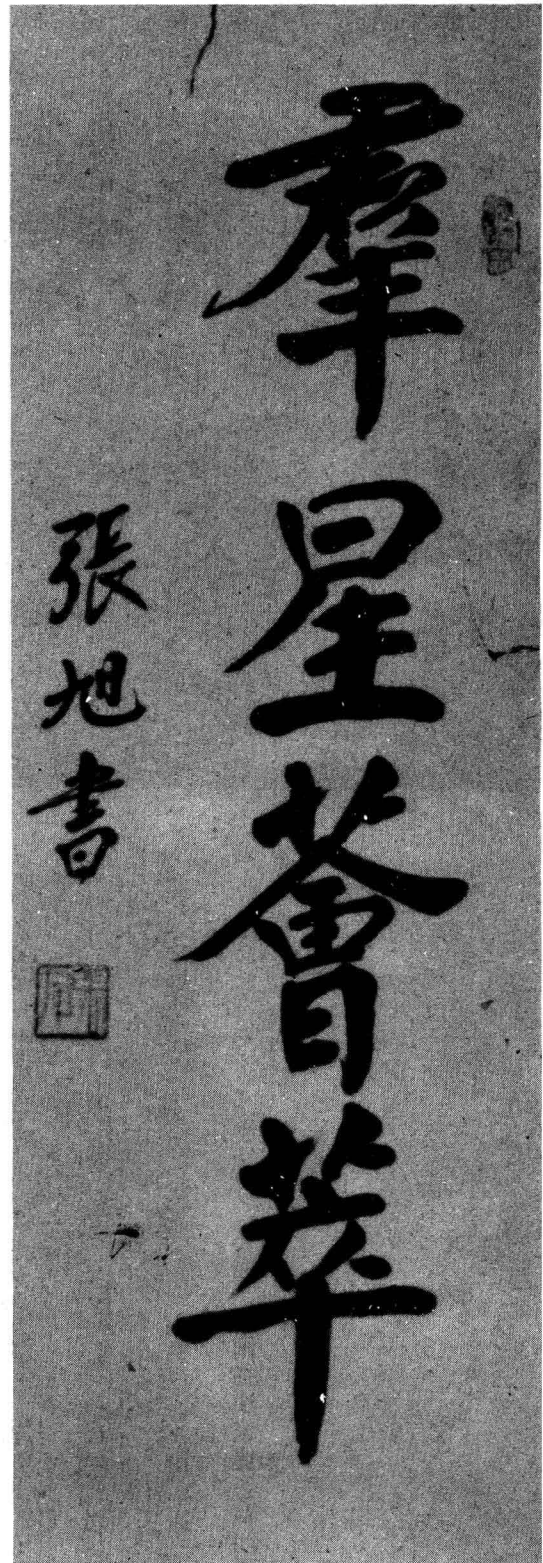 羣星薈萃
張旭書